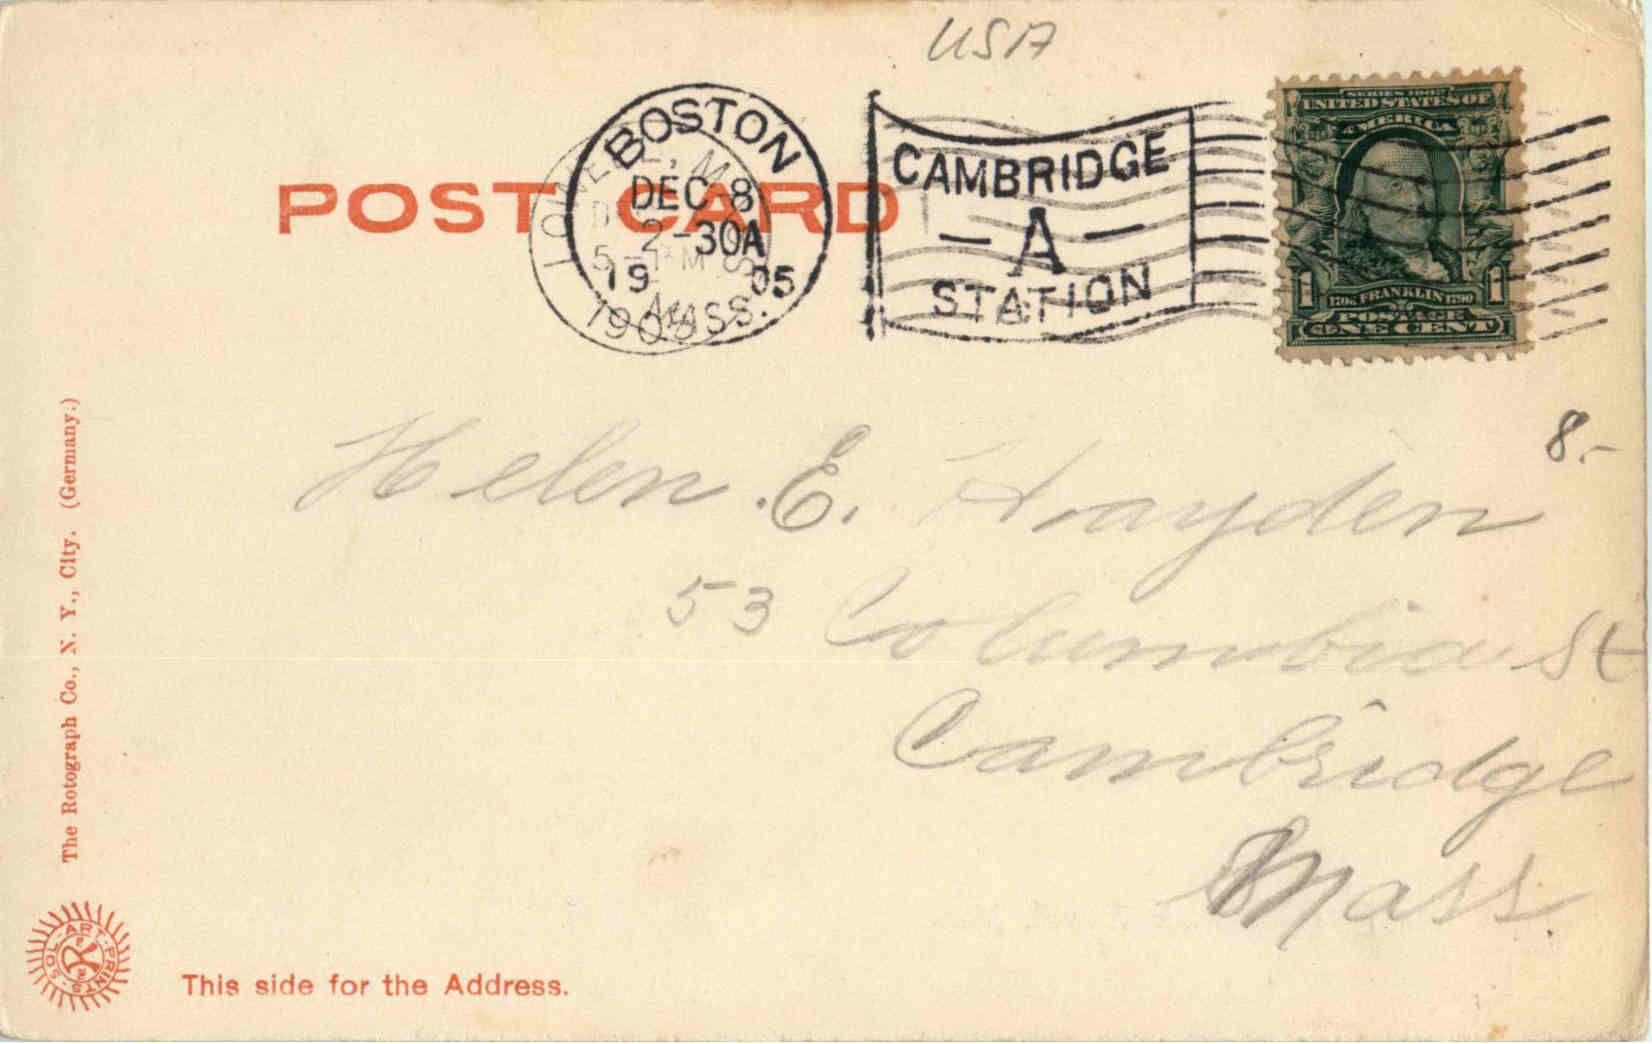 USA
BOSTON
DEC 8
2-30A
1905
MASS.
LOWELL, MASS.
1905
CAMBRIDGE
- A -
STATION
SERIES 1902
UNITED STATES OF
AMERICA
1 1
1706 FRANKLIN 1790
POSTAGE
ONE CENT
POST CARD
8.-
Helen. E. Hayden
53 Columbia St
Cambridge
Mass
The Rotograph Co., N. Y., City. (Germany.)
SOL-ART-PRINTS
This side for the Address.